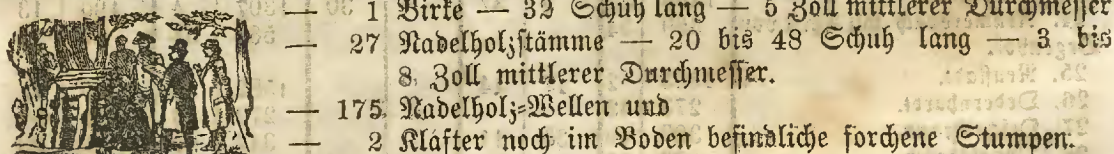 — 1 Birke — 32 Schuh lang — 5 Zoll mittlerer Durchmesser
— 27 Nadelholzstämme — 20 bis 48 Schuh lang — 3 bis
8 Zoll mittlerer Durchmesser.
— 175 Nadelholz-Wellen und
— 2 Klafter noch im Boden befindliche forchene Stumpen.